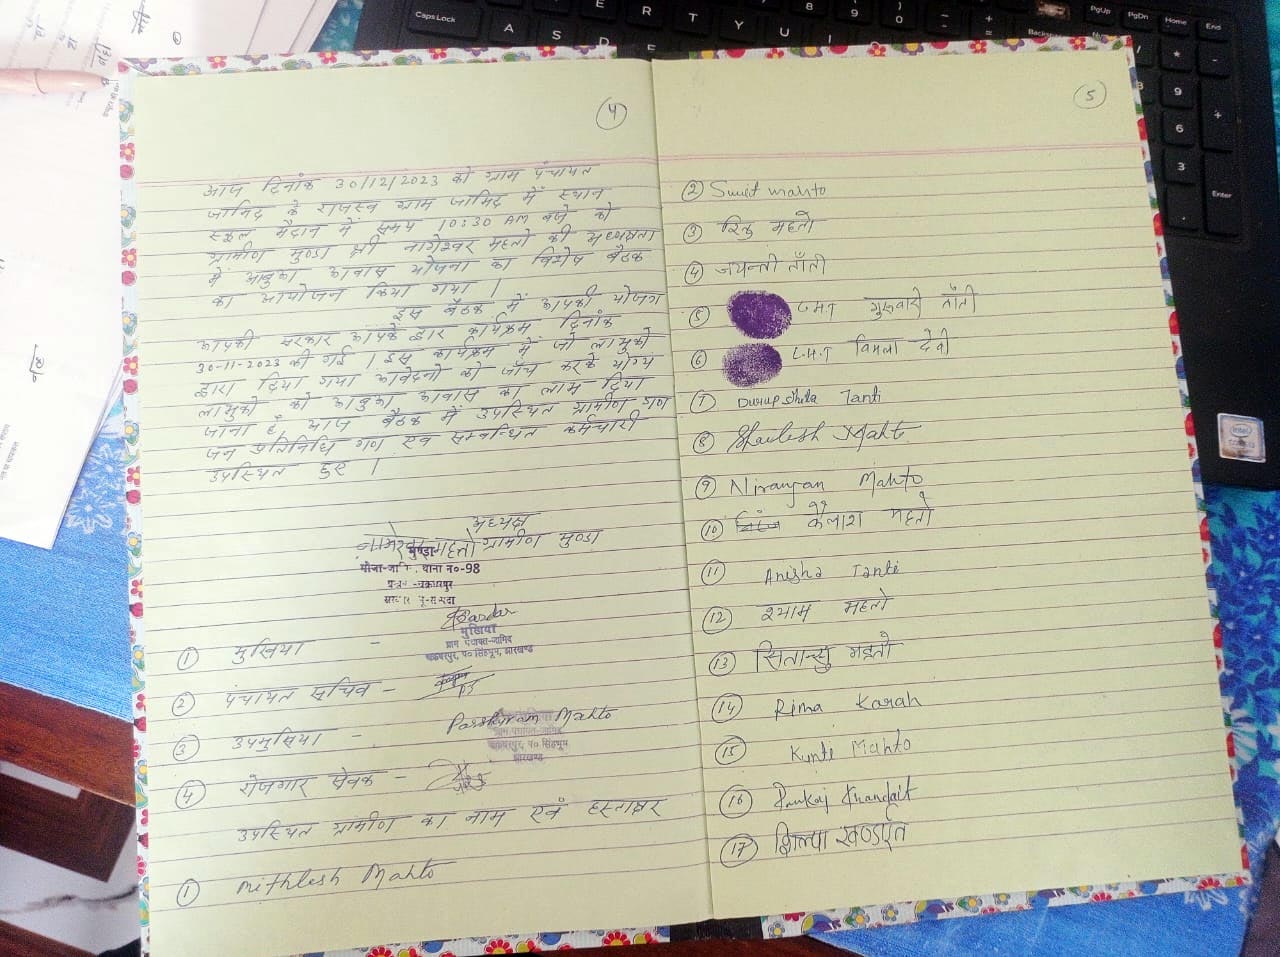 4
आज दिनांक 30/12/2023 को ग्राम पंचायत
जामिद के राजस्व ग्राम जामिद में स्थान
स्कूल मैदान में समय 10:30 AM बजे को
ग्रामीण मुण्डा श्री नागेश्वर महतो की अध्यक्षता
में आबुआ आवास योजना का विशेष बैठक
का आयोजन किया गया ।
इस बैठक में आपकी योजना
आपकी सरकार आपके द्वार कार्यक्रम दिनांक
30-11-2023 की गई । इस कार्यक्रम में जो लाभुको
द्वारा दिया गया आवेदनो को जाँच करके योग्य
लाभुको को आबुआ आवास का लाभ दिया
जाना है, आज बैठक में उपस्थित ग्रामीण गण
जन प्रतिनिधि गण एवं सम्बन्धित कर्मचारी
उपस्थित हुए ।
अध्यक्ष
नागेश्वर महतो ग्रामीण मुण्डा
मुण्डा
थाना न०-98
मुखिया
ग्राम पंचायत-जामिद
चक्रधरपुर, प० सिंहभूम, झारखण्ड
① मुखिया -
② पंचायत सचिव -
③ उपमुखिया - Parshuram Mahto
ग्राम पंचायत-जामिद
चक्रधरपुर, प० सिंहभूम
झारखण्ड
④ रोजगार सेवक -
उपस्थित ग्रामीण का नाम एवं हस्ताक्षर
① Mithlesh Mahto
5
② Sumit mahto
③ रिंकु महतो
④ जयन्ती ताँती
⑤ L.H.T गुरुवारी ताँती
⑥ L.H.T विमला देवी
⑦ Tanti
⑧ Shailesh Mahto
⑨ Niranjan Mahto
⑩ कैलाश महतो
⑪ Anisha Tanti
⑫ श्याम महतो
⑬ महतो
⑭ Rima Karah
⑮ Kunti Mahto
⑯ Pankaj Khandait
⑰ शिल्पा खण्डाईत
Caps Lock
A
S
D
E
R
T
Y
U
I
PgUp
PgDn
Home
End
Enter
intel